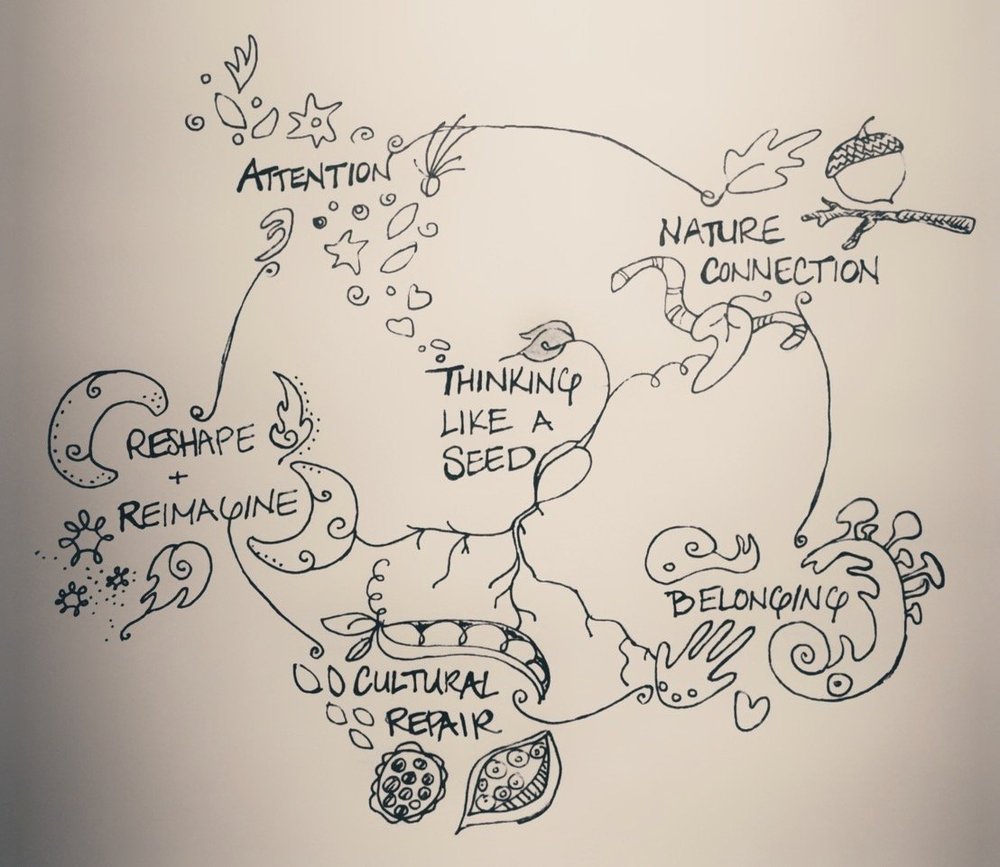 ATTENTION
NATURE
CONNECTION
THINKING
LIKE A
SEED
RESHAPE
+
REIMAGINE
BELONGING
CULTURAL
REPAIR